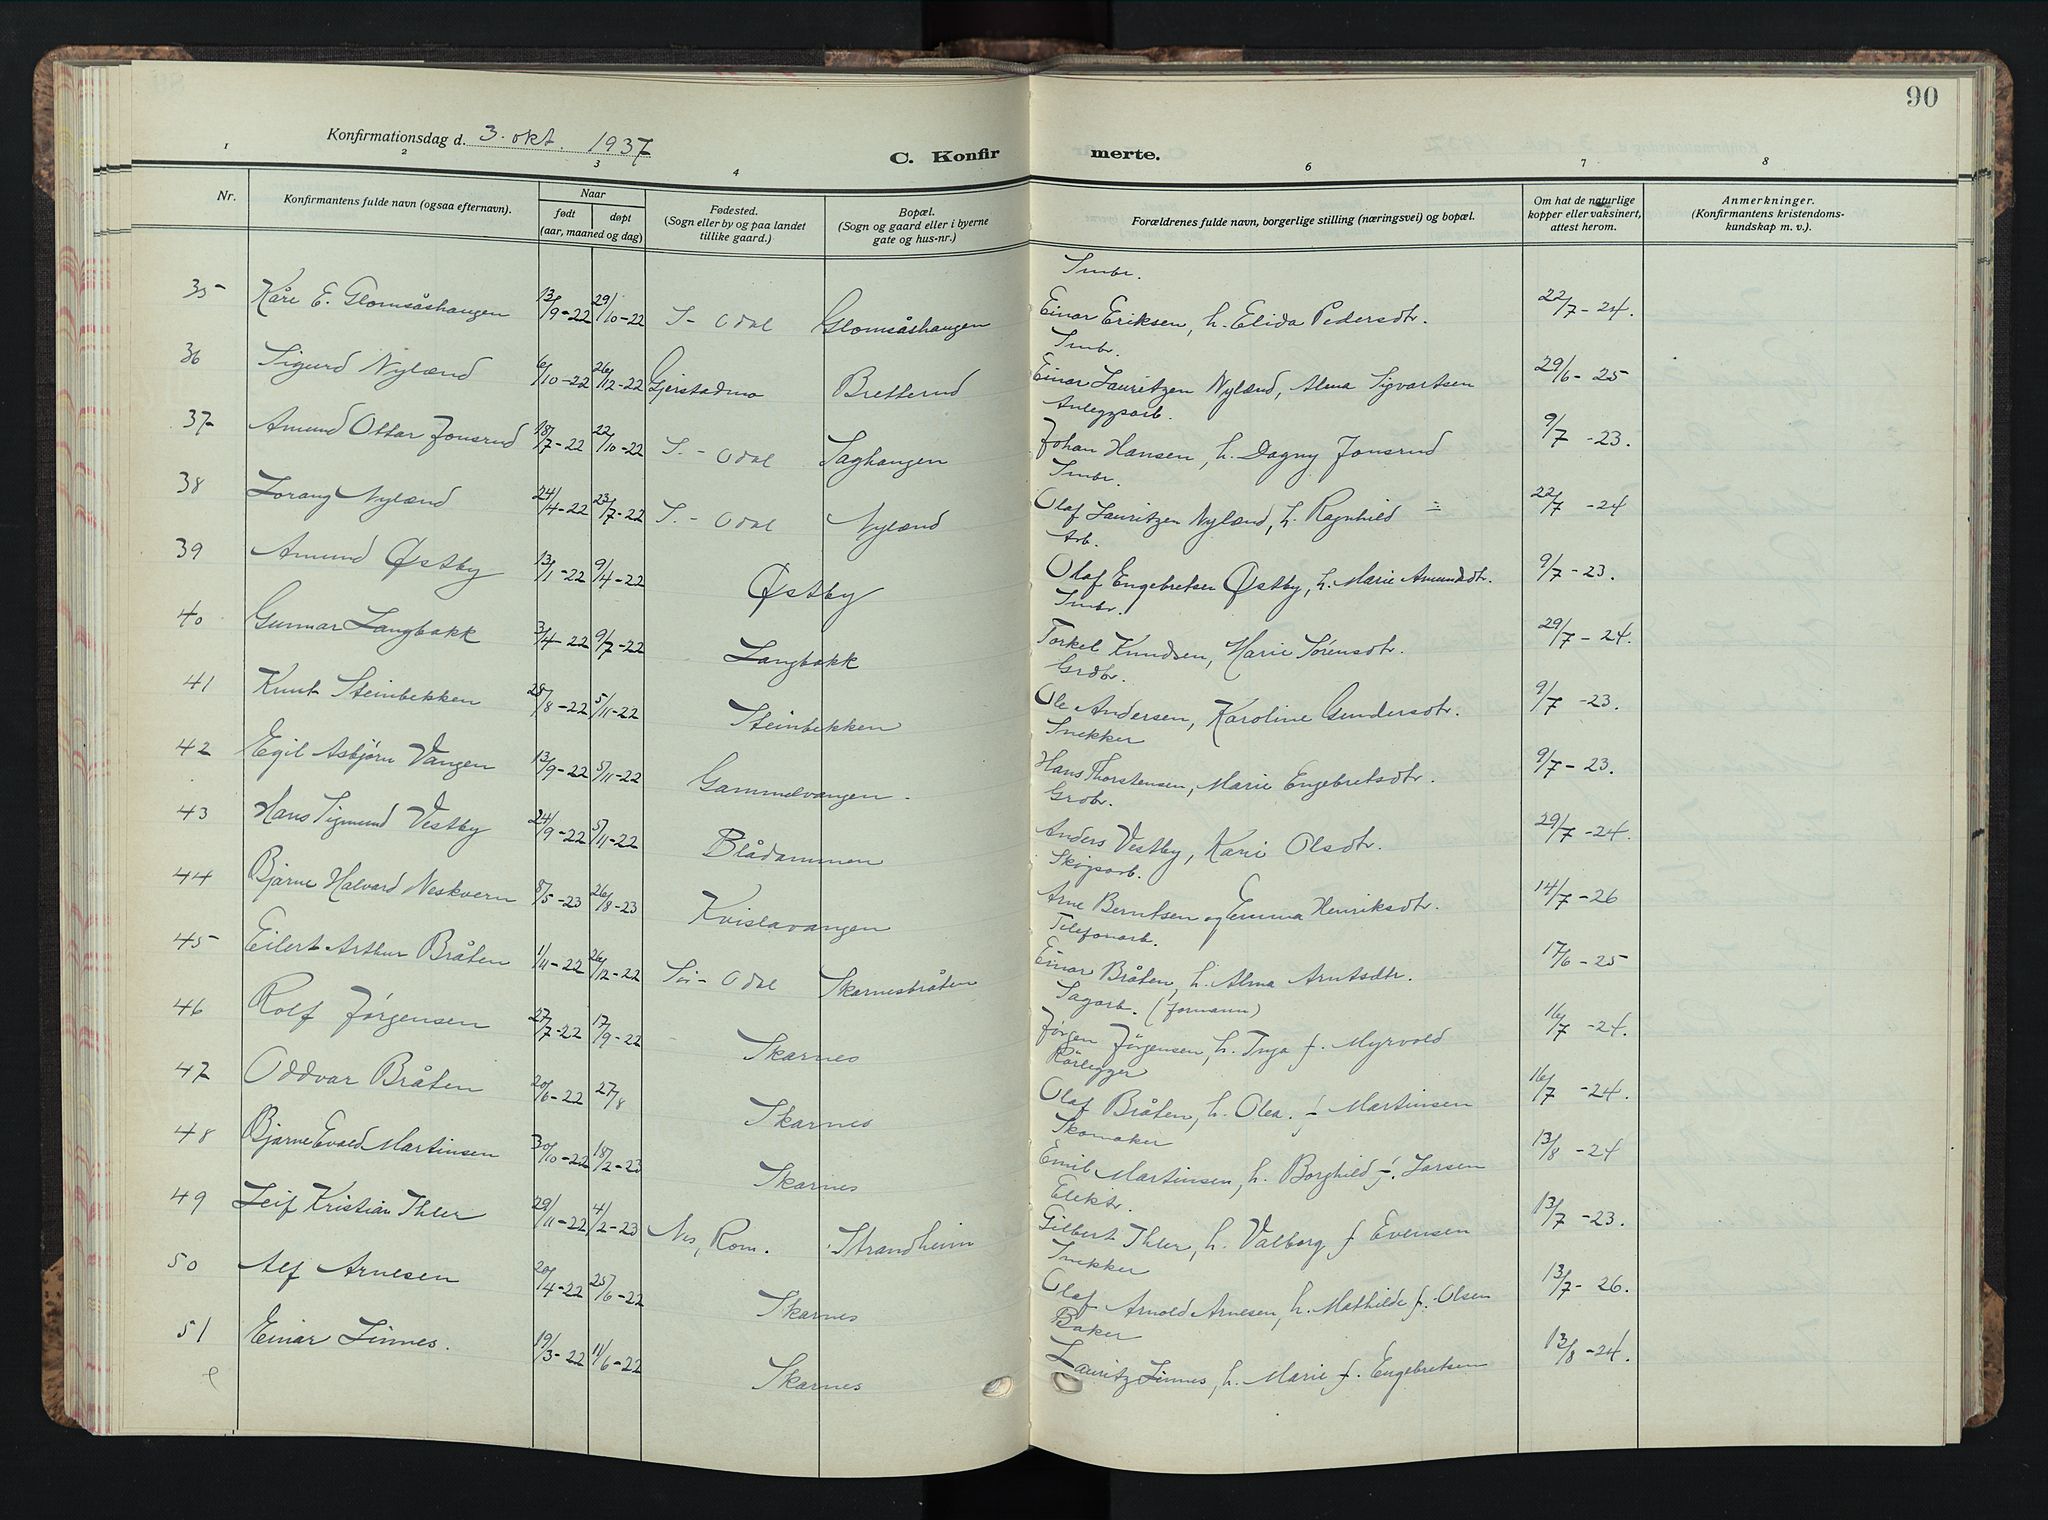 90
Konfirmationsdag d. 3. okt. 1937
C. Konfirmerte.
1 2 3 4 6 7 8
Nr. Konfirmantens fulde navn (ogsaa efternavn). Naar født døpt (aar, maaned og dag) Fødested. (Sogn eller by og paa landet tillike gaard.) Bopæl. (Sogn og gaard eller i byerne gate og hus-nr.) Forældrenes fulde navn, borgerlige stilling (næringsvei) og bopæl. Om hat de naturlige kopper eller vaksinert, attest herom. Anmerkninger. (Konfirmantens kristendomskundskap m. v.).
Smbr.
35 Kåre E. Glomsåshaugen 13/9-22 29/10-22 S-Odal Glomsåshaugen Einar Eriksen, h. Elida Pedersdtr. 22/7-24.
Smbr.
36 Sigurd Nylænd 6/10-22 26/12-22 Gjerstadmo Bretterud Einar Lauritzen Nylænd, Alma Sigvartsen 29/6-25
Anleggsarb.
37 Amund Ottar Jonsrud 18/7-22 22/10-22 S.-Odal Saghaugen Johan Hansen, h. Dagny Jonsrud 9/7-23.
Smbr.
38 Lorang Nylænd 24/4-22 23/7-22 S.-Odal Nylænd Olaf Lauritzen Nylænd, h. Ragnhild 22/7-24
Arb.
39 Amund Østby 13/1-22 9/4-22 Østby Olaf Engebretsen Østby, h. Marie Amundsdtr. 9/7-23.
Smbr.
40 Gunnar Langbakk 3/4-22 9/7-22 Langbakk Torkel Knudsen, Marie Sørensdtr. 29/7-24.
Grdbr.
41 Knut Steinbekken 28/8-22 5/11-22 Steinbekken Ole Andersen, Karoline Gundersdtr. 9/7-23.
Snekker
42 Egil Asbjørn Vangen 13/9-22 5/11-22 Gammelvangen. Hans Thorstensen, Marie Engebretsdtr. 9/7-23.
Grdbr.
43 Hans Sigmund Vestby 24/9-22 5/11-22 Blådammen Anders Vestby, Kari Olsdtr. 29/7-24.
Skogsarb.
44 Bjarne Halvard Neskvern 8/5-23 26/8-23 Kvislavangen Arne Berntsen og Emma Henriksdtr. 14/7-26
Telefonarb.
45 Eilert Arthur Bråten 1/11-22 26/12-22 Sö-Odal Skarnesbråten Einar Bråten, h. Alma Arntsdtr. 17/6-25
Sagarb. (formann)
46 Rolf Jørgensen 27/7-22 17/9-22 Skarnes Jørgen Jørgensen, h. Inga f. Myrvold 16/7-24.
Rørlegger
47 Oddvar Bråten 20/6-22 27/8 Skarnes Olaf Bråten, h. Olea f. Martinsen 16/7-24.
Skomaker
48 Bjarne Evald Martinsen 30/10-22 18/2-23 Skarnes Emil Martinsen, h. Borghild f. Larsen 13/8-24
Elektr.
49 Leif Kristian Ihler 29/11-22 4/2-23 Nes, Rom. Strandheim Gilbert Ihler, h. Valborg f Evensen 13/7-23.
Snekker
50 Alf Arnesen 20/4-22 25/6-22 Skarnes Olaf Arnold Arnesen, h. Mathilde f. Olsen 13/7-26.
Baker
51 Einar Linnes. 19/3-22 11/6-22 Skarnes Lauritz Linnes, h. Marie f. Engebretsen 13/8-24.